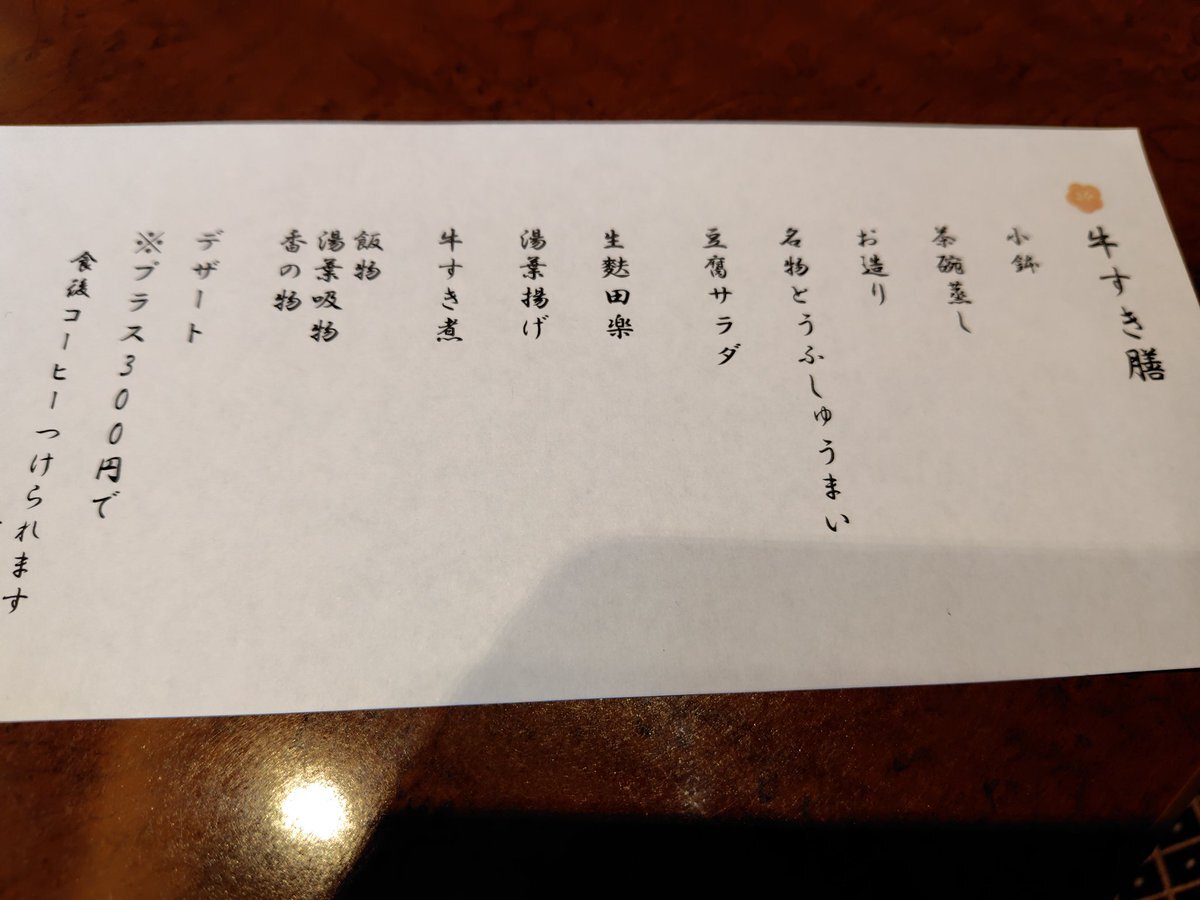 牛すき膳
小鉢
茶碗蒸し
お造り
名物とうふしゅうまい
豆腐サラダ
生麩田楽
湯葉揚げ
牛すき煮
飯物
湯葉吸物
香の物
デザート
※プラス300円で
食後コーヒーつけられます